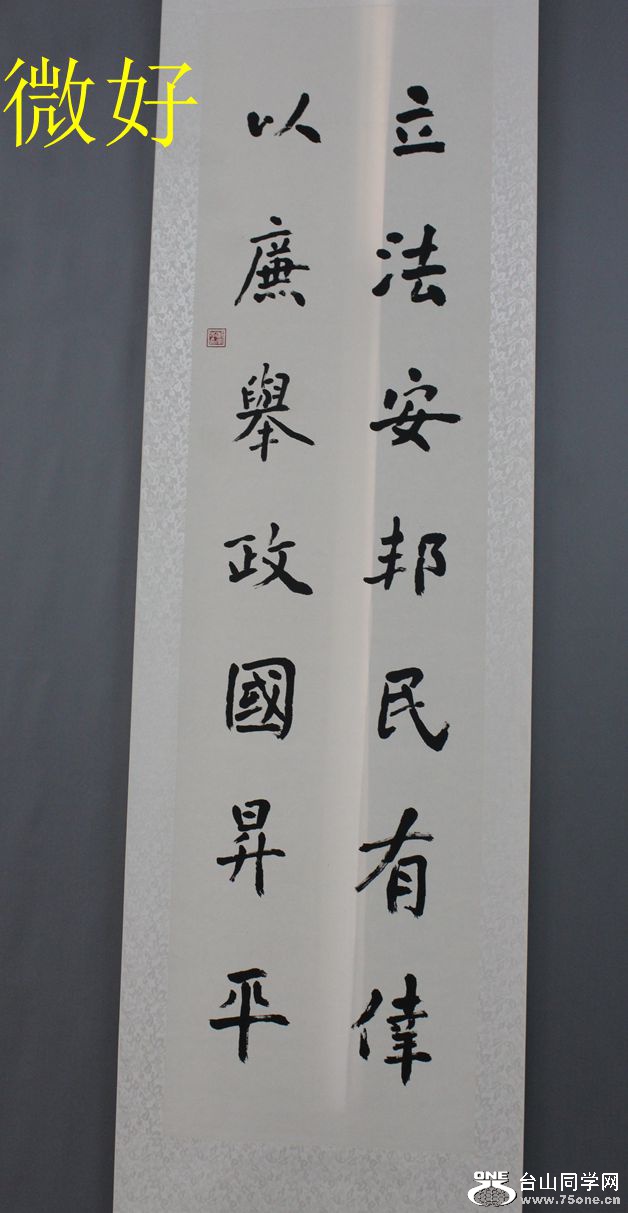 微好
立法安邦民有倖
以廉舉政國昇平
ONE
台山同学网
www.75one.cn